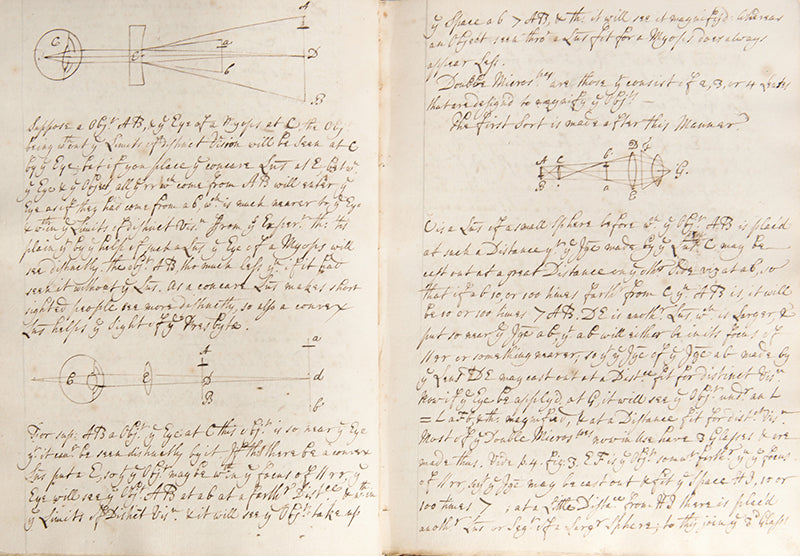 C
E
A
a
D
b
B
Suppose a Obj.t AB, & y Eye of a Myops at C the Obj.t
being w.tout y Limits of Distinct Vision will be seen at C
by y Eye, but if you place y concave Lens at E betw.n
y Eye & y Object all Rays w.ch come from AB will enter y
Eye as if they had come from a b w.ch is much nearer to y Eye
& w.thin y Limits of distinct Vis.n From y Exper.t th.s tis
plain y.t by y help of such a Lens y Eye of a Myops will
see distinctly the obj.t AB, tho much less y.n if it had
seen it without y Lens. As a concave Lens makes short
sighted people see more distinctly, so also a convex
Lens helps y Sight of y Presbytæ.
C
E
A
D
B
a
d
b
For sup: AB a Obj.t y Eye at C this obj.t is so near y Eye
y.t it can't be seen distinctly by it. If th.n there be a convex
Lens put a E, so y.t y Obj.t may be w.thin y focus of it y
Eye will see y Obj.t AB at ab at a farth.r Distance & w.thin
y Limits of Distinct Vis.n & it will see y Obj.t take up
y Space ab > AB, & th: it will see it magnify'd: whereas
an Object seen thro' a Lens fit for a Myops does always
appear Less.
Double Micros.pes are those y.t consist of 2, 3, or 4 Lenses
that are design'd to magnify y Obj.t
The first Sort is made after this Manner.
A
B
C
b
a
D
E
F
G.
C is a Lens of a small Sphere before w.ch y Obj.t AB is plac'd
at such a Distance y.t y Jge made by y Lens C may be
cast out at a great Distance on y oth.r Side viz at ab, so
that if ab 10, or 100 times farth.r from C y.n AB is, it will
be 10 or 100 times > AB. DE is anoth.r Lens w.ch is Larger &
put so near y Jge ab, y.t ab will either be in its focus of
or something nearer, so y.t y Jge of y Jge ab made by
y Lens DE may be cast out at a Dist.ce fit for Distinct Vis.n
Now if y Eye be apply'd at G, it will see y Obj.t und.r an L
= L magnified, & at a Distance fit for dist.ct Vis.n
Most of y Double Micros.pes now in Use have 3 Glasses & are
made thus. Vide p. 4. fig. 3. EF is y Obj.t somew.t farth.r y.n y focus
of so y.t y Jge may be cast out & fit y Space AD, 10 or
100 times > ; at a Little Distance from AD there is plac'd
anoth.r Lens or Seg.t of a larg.r Sphere, to this join y 3.d Glass